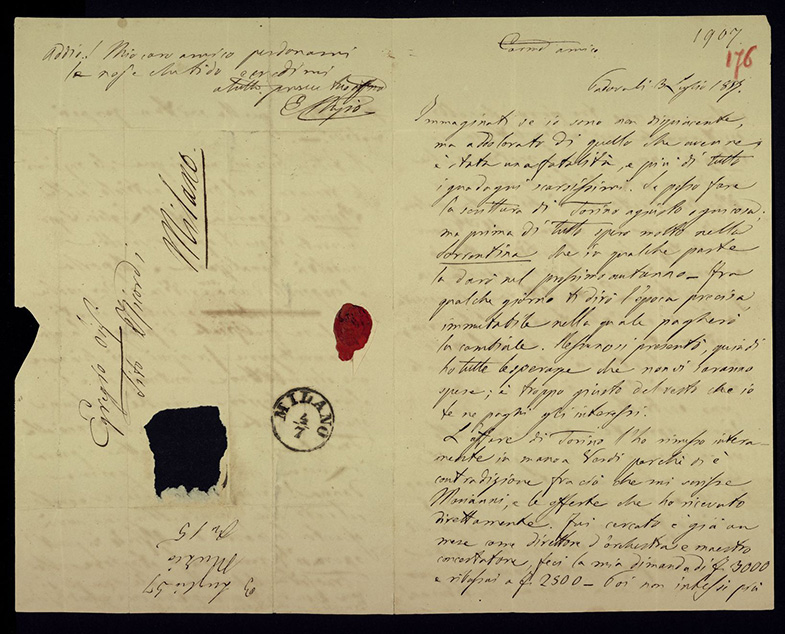 1907
176
Caro amico
3 Luglio 1857.
Immaginati se io sono non dispiacente,
ma addolorato di quello che avenne;
è stata una fatalità, e più di tutto
i guadagni scarsissimi. Se posso fare
la scrittura di Torino aggiusto ogni cosa;
ma prima di tutto spero molto nella
Sorrentina che in qualche parte
la darò nel prossimo autunno – Fra
qualche giorno ti dirò l'epoca precisa
immutabile nella quale pagherò
la cambiale. Nessuno si presentò, quindi
ho tutte le speranze che non vi saranno
spese; è troppo giusto del resto che io
te ne paghi gli interessi.
L'affare di Torino l'ho rimesso intera-
mente in mano a Verdi perchè vi è
contradizione fra ciò che mi scrisse
e le offerte che ho ricevuto
direttamente. Fui cercato è già un
mese come direttore d'orchestra e maestro
concertatore, feci la mia dimanda di f. 3000
e ribassai a f. 2500 – Poi non intesi più
Addio! Mio caro amico perdonami
la noja che ti do e credimi
a tutta prova tuo affmo
E Muzio
Egregio Sigr
Tito Ricordi,
Milano.
MILANO
4/7
3 Luglio 57
Muzio